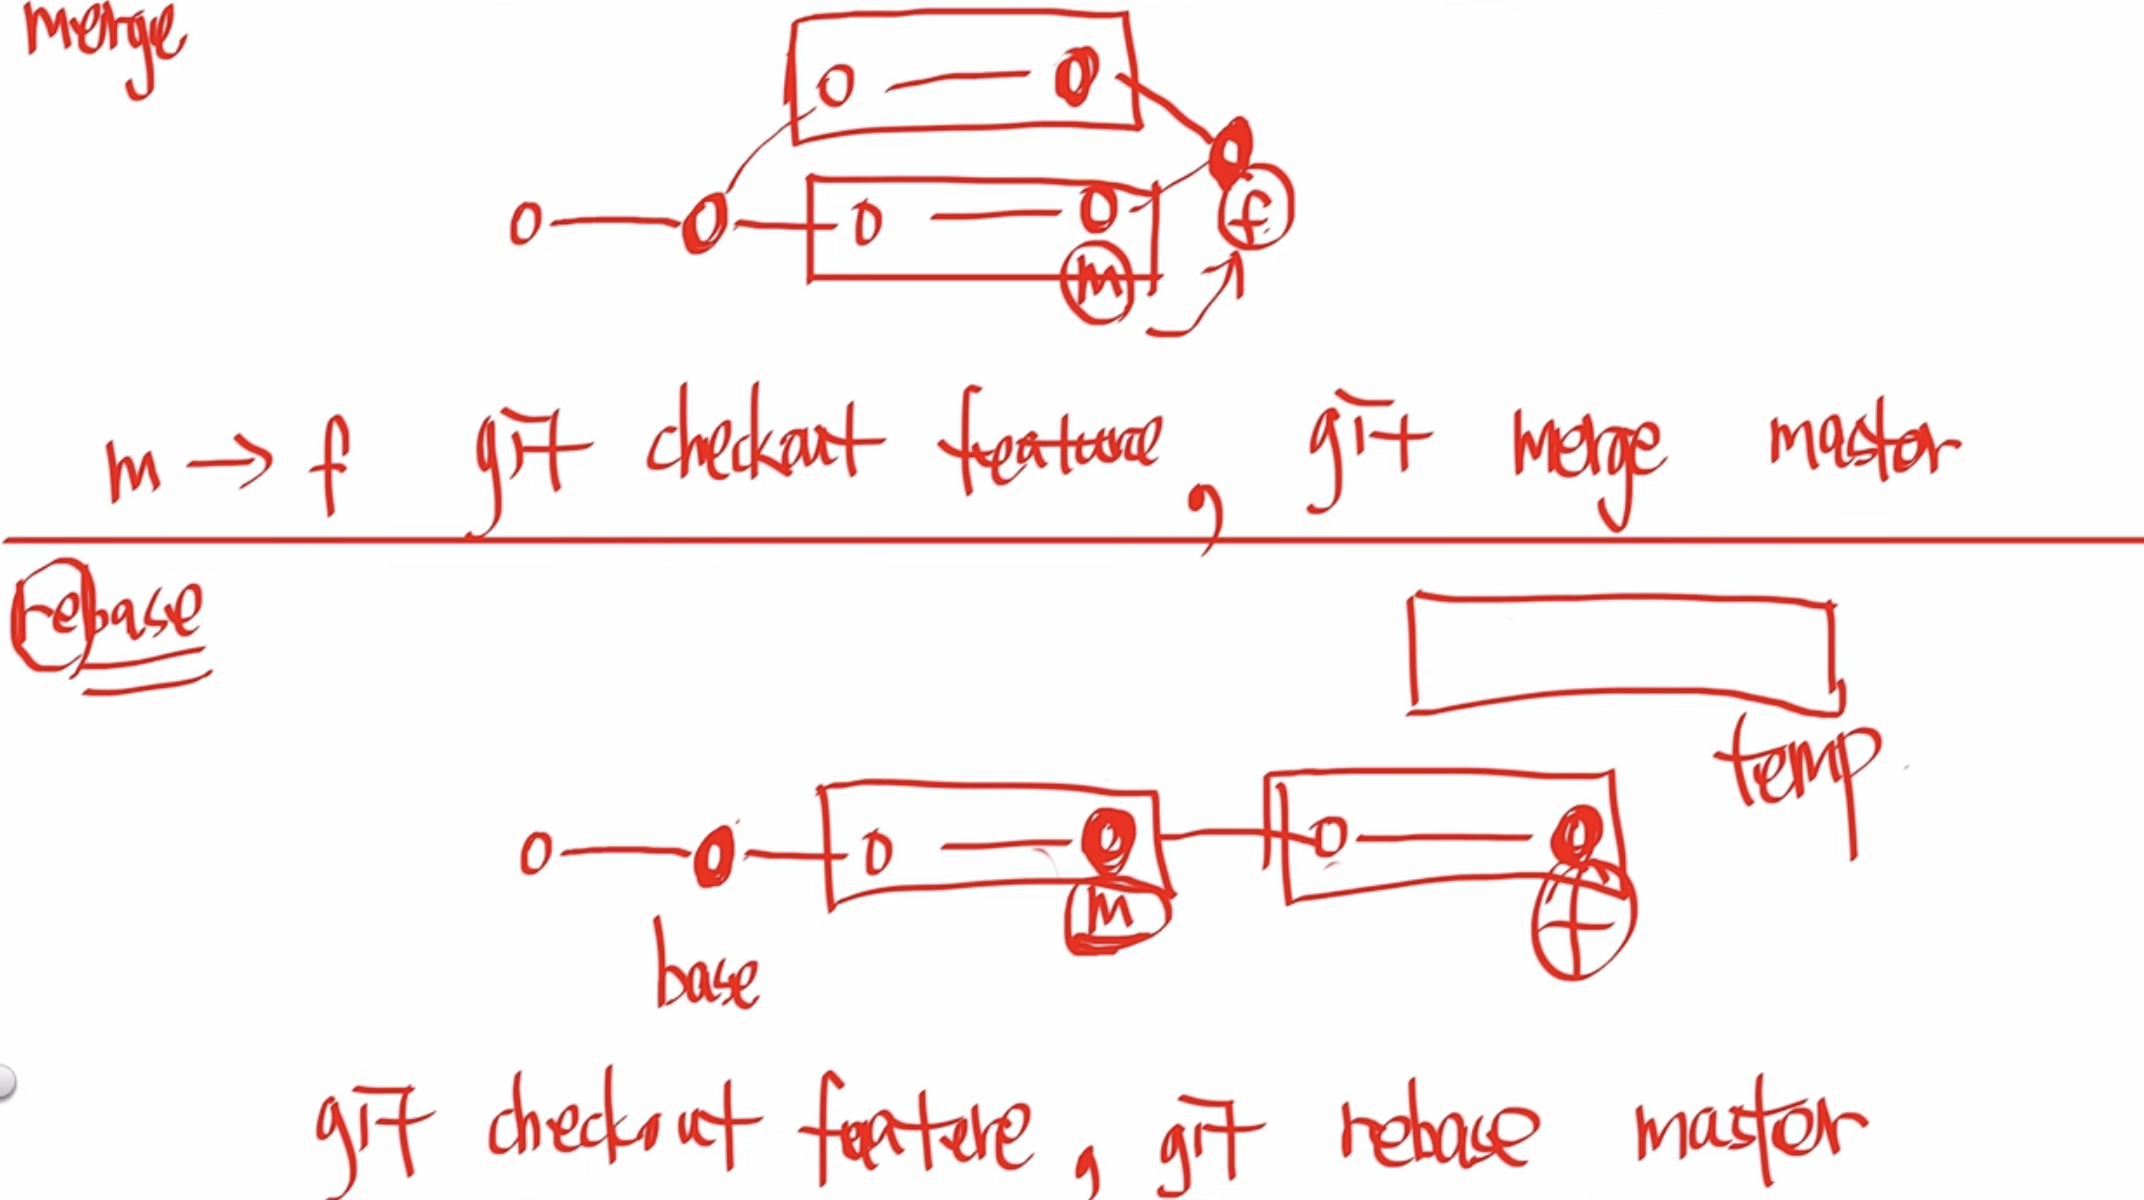 merge
f
m
m → f git checkout feature, git merge master
rebase
temp
m
f
base
git checkout feature, git rebase master